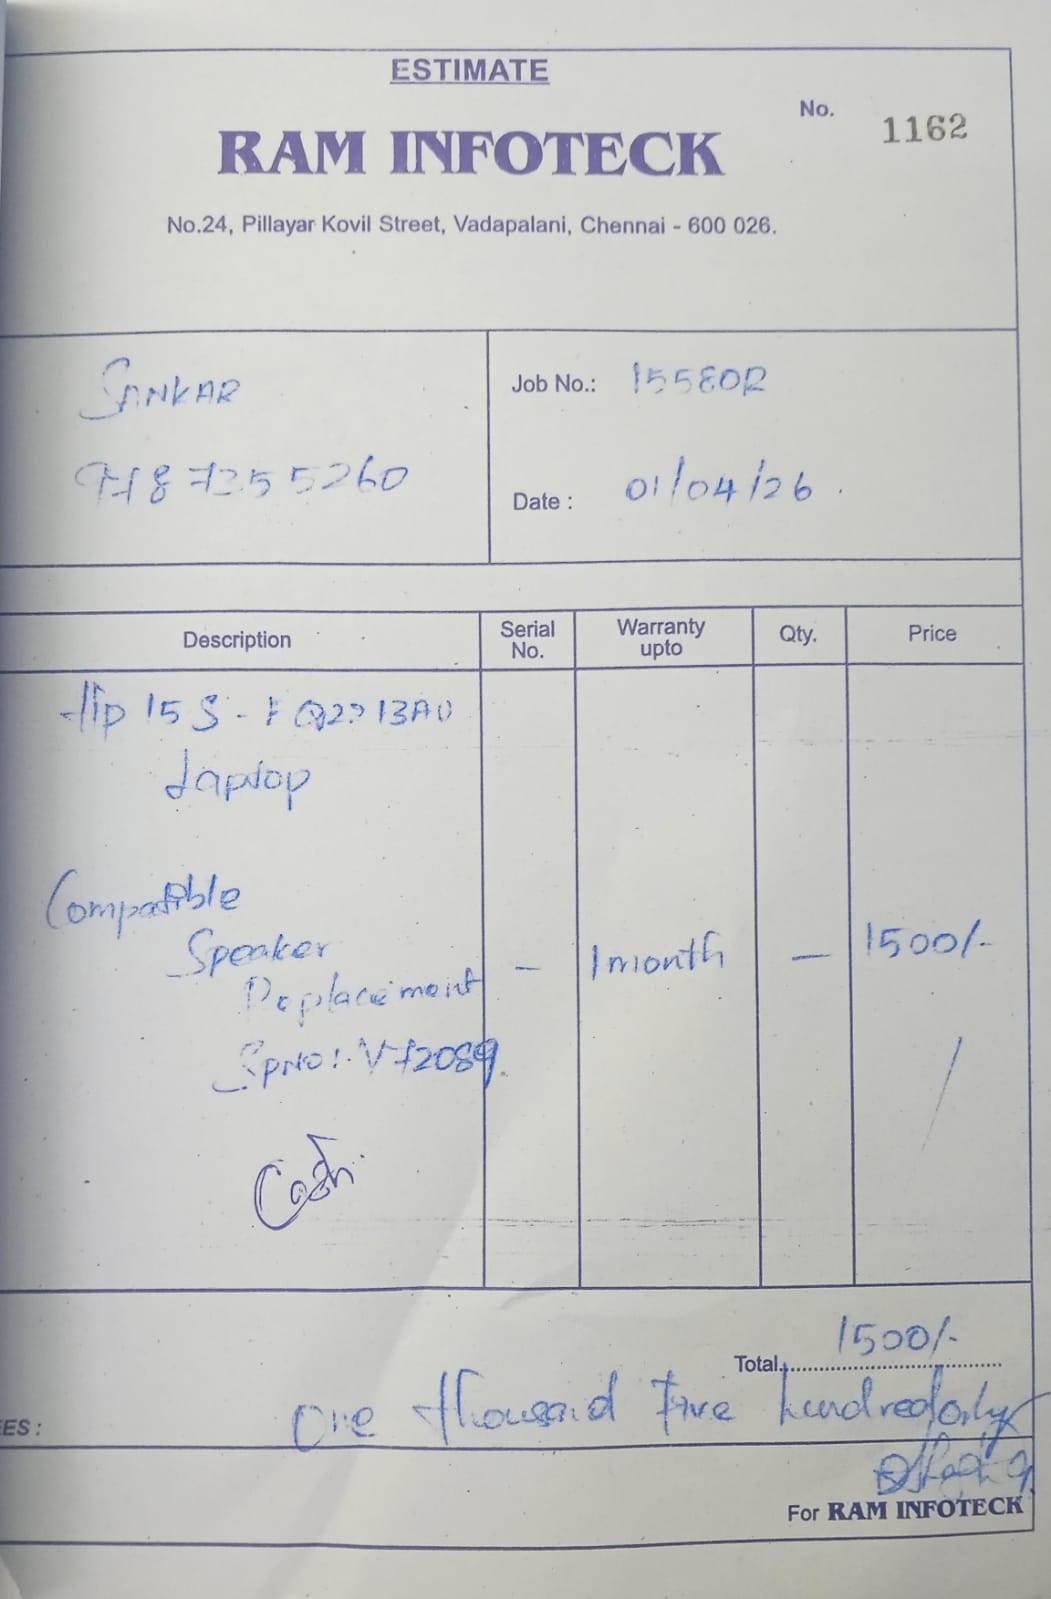 ESTIMATE
No. 1162
RAM INFOTECK
No.24, Pillayar Kovil Street, Vadapalani, Chennai - 600 026.
SANKAR
Job No.: 15580R
9787255260
Date : 01/04/26
Description Serial No. Warranty upto Qty. Price
Hp 15 S -
Laptop
Compatible
Speaker - 1 month - 1500/-
Replacement
SpNo: V72089
Cash
Total 1500/-
EES : One thousand Five hundred only
For RAM INFOTECK